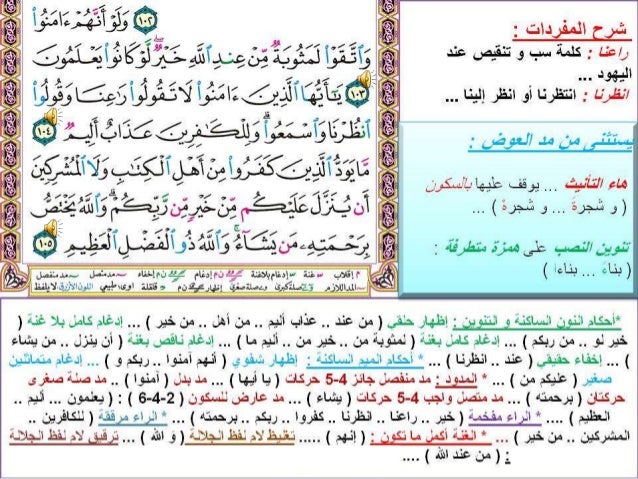 شرح المفردات :
راعنا : كلمة سب و تنقيص عند
اليهود ...
انظرنا : انتظرنا أو انظر إلينا ...
يستثنى من مد العوض :
هاء التأنيث ... يوقف عليها بالسكون
( و شجرةَ ... و شجرةْ ) ...
تنوين النصب على همزة متطرفة :
( بناءً ... بناءا )
١٠٢ وَلَوْ أَنَّهُمْ ءَامَنُوا۟
وَٱتَّقَوْا۟ لَمَثُوبَةٌ مِّنْ عِندِ ٱللَّهِ خَيْرٌ لَّوْ كَانُوا۟ يَعْلَمُونَ
١٠٣ يَٰٓأَيُّهَا ٱلَّذِينَ ءَامَنُوا۟ لَا تَقُولُوا۟ رَٰعِنَا وَقُولُوا۟
ٱنظُرْنَا وَٱسْمَعُوا۟ وَلِلْكَٰفِرِينَ عَذَابٌ أَلِيمٌ ١٠٤
مَّا يَوَدُّ ٱلَّذِينَ كَفَرُوا۟ مِنْ أَهْلِ ٱلْكِتَٰبِ وَلَا ٱلْمُشْرِكِينَ
أَن يُنَزَّلَ عَلَيْكُم مِّنْ خَيْرٍ مِّن رَّبِّكُمْ وَٱللَّهُ يَخْتَصُّ
بِرَحْمَتِهِۦ مَن يَشَآءُ وَٱللَّهُ ذُو ٱلْفَضْلِ ٱلْعَظِيمِ ١٠٥
*أحكام النون الساكنة و التنوين : إظهار حلقي ( من عند .. عذاب أليم .. من أهل .. من خير ) ... إدغام كامل بلا غنة (
خير لو .. من ربكم ) ... إدغام كامل بغنة ( لمثوبة من .. خير من .. أليم ما ) ... إدغام ناقص بغنة ( أن ينزل .. من يشاء
) ... إخفاء حقيقي ( عند .. انظرنا ) ... * أحكام الميم الساكنة : إظهار شفوي ( أنهم آمنوا .. ربكم و ) ... إدغام متماثلين
صغير ( عليكم من ) ... * المدود : مد منفصل جائز 4-5 حركات ( يا أيها ) ... مد بدل ( آمنوا ) .. مد صلة صغرى
حركتان ( برحمته ) ... مد متصل واجب 4-5 حركات ( يشاء ) ... مد عارض للسكون ( 2-4-6 ) : ( يعلمون ... أليم ..
العظيم ) .... * الراء مفخمة ( خير .. راعنا .. انظرنا .. كفروا .. ربكم .. برحمته ) ... * الراء مرققة ( للكافرين ..
المشركين .. من خير ) ... * الغنة أكمل ما تكون : ( إنهم ) ..... تغليظ لام لفظ الجلالة ( و الله ) ... ترقيق لام لفظ الجلالة
: ( من عند الله ) ....